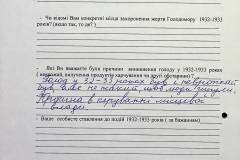 - Чи відомі Вам конкретні місця захоронення жертв Голодомору 1932-1933
років? (якщо так, то де?)
- Які Ви вважаєте були причини виникнення голоду у 1932-1933 роках
( неврожай, вилучення продуктів харчування чи другі обставини) ?
Голод у 32-33 роках був і неврожай
був, але не такий, щоб люди гинули,
Причина в керуванні місцевої
влади.
- Ваше особисте ставлення до подій 1932-33 років ( за бажанням)